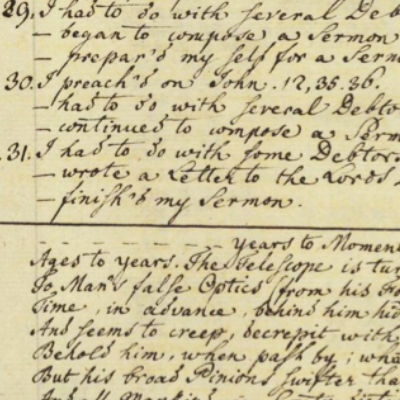 29. I had to do with several Deb
— began to compose a Sermon
— prepar'd my self for a Serm
30. I preach'd on John. 12,35.36.
— had to do with several Debto
— continued to compose a Serm
31. I had to do with some Debtors
— wrote a Letter to the Lords
— finish'd my Sermon.
- - - - - - - years to Momen
Ages to years. The Telescope is tur
To Man's false Optics (from his Fo
Time, in advance, behind him hid
And seems to creep, decrepit with
Behold him, when past by; wha
But his broad Pinions swifter tha
And all Mankind